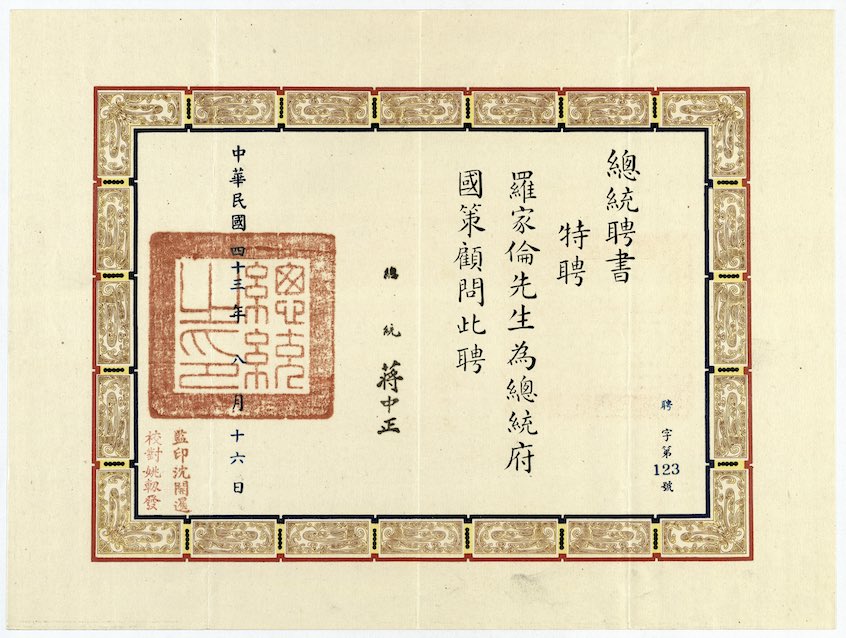 聘字第123號
總統聘書
特聘
羅家倫先生為總統府
國策顧問此聘
總統 蔣中正
中華民國四十三年八月十六日
總統之印
監印沈開運
校對姚軔發